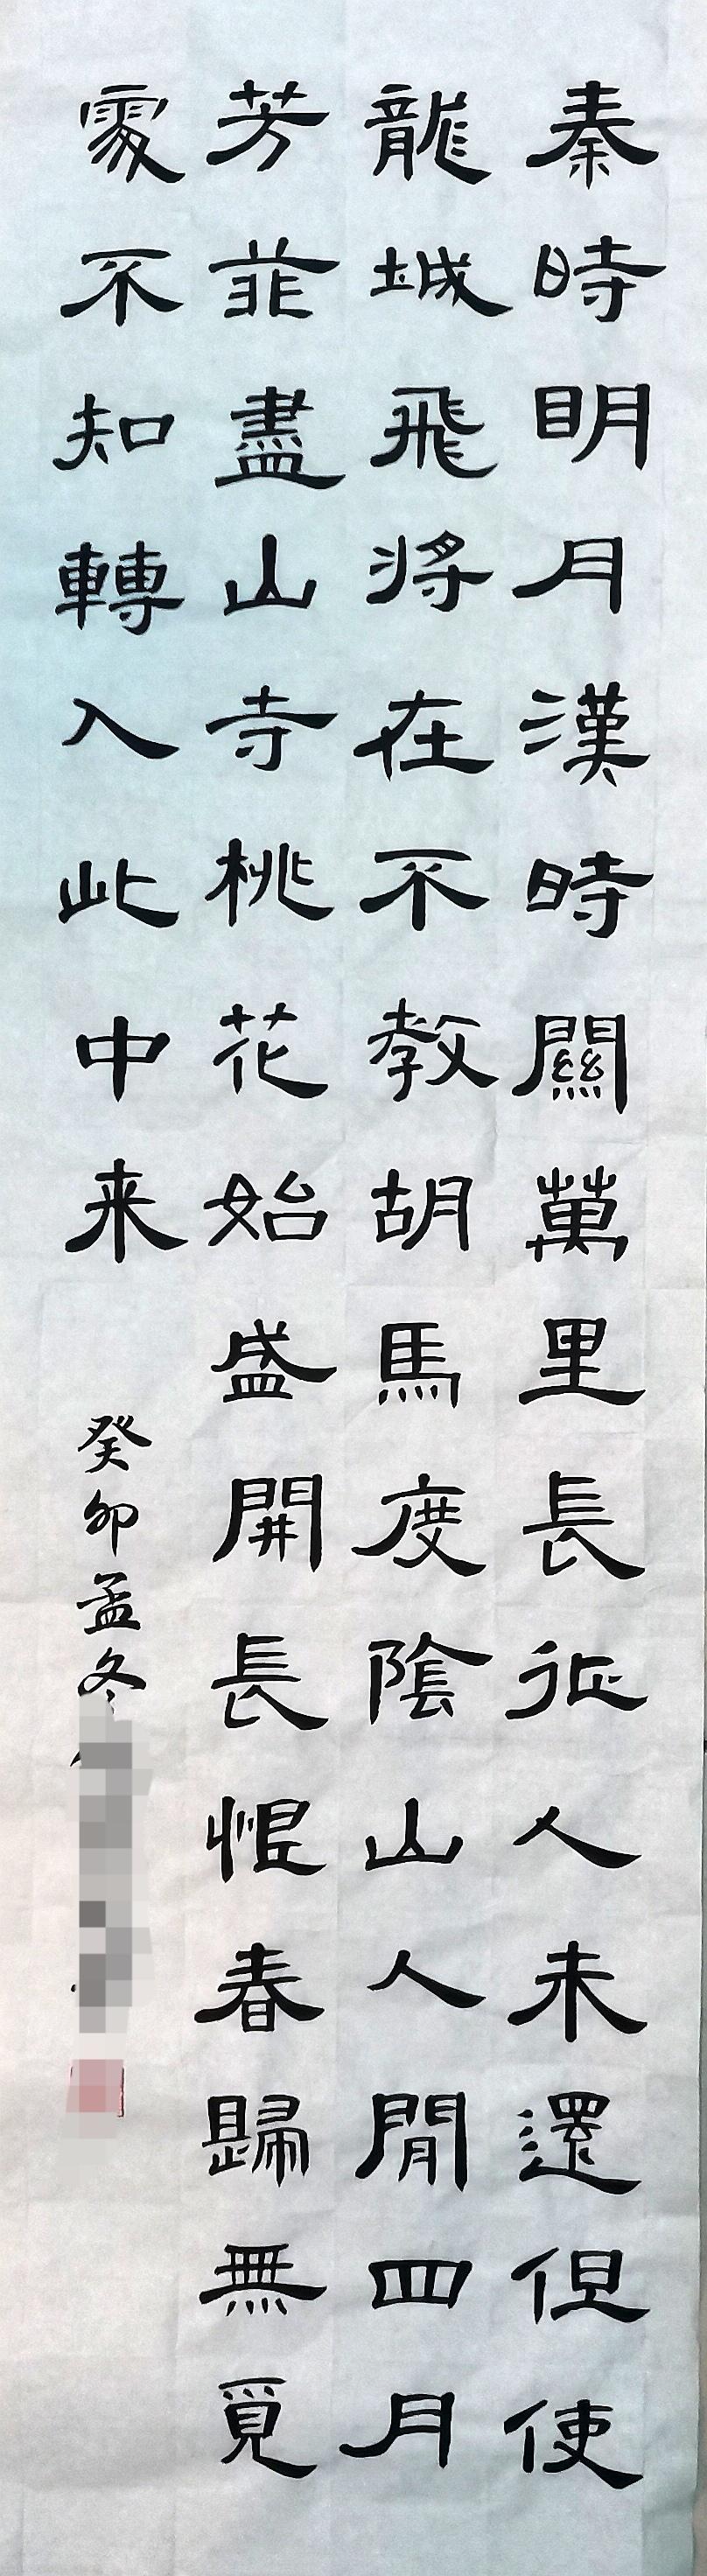 秦時明月漢時關萬里長征人未還但使
龍城飛將在不教胡馬度陰山人間四月
芳菲盡山寺桃花始盛開長恨春歸無覓
處不知轉入此中来
癸卯孟冬